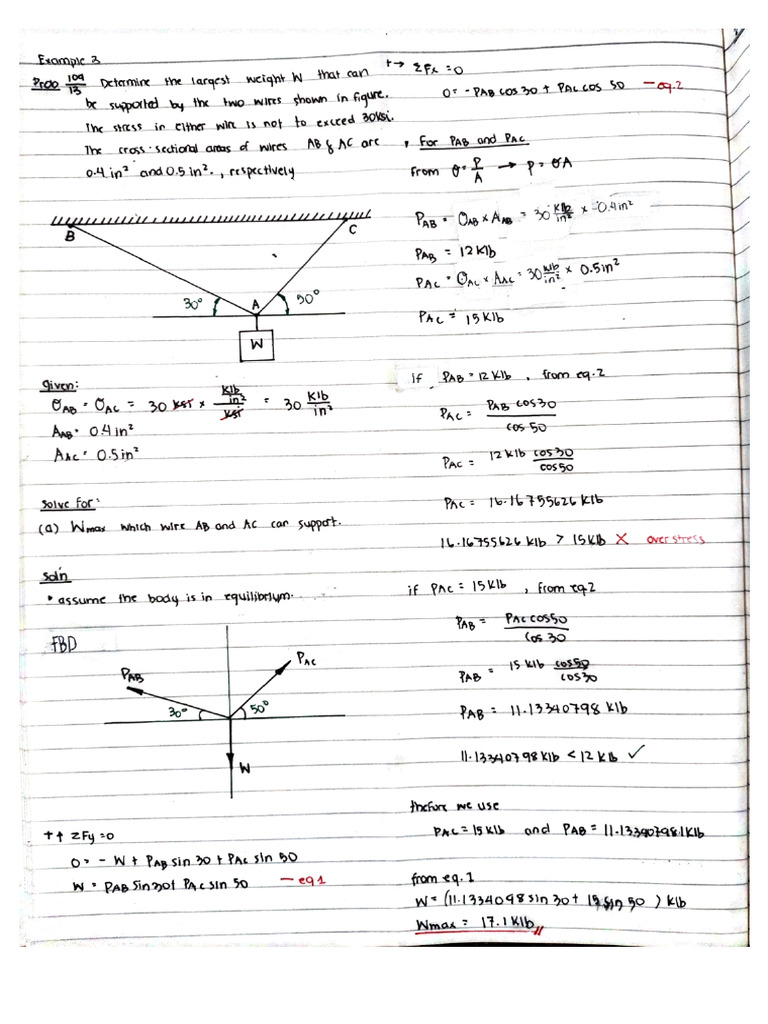 Example 3
Prob 109/13 Determine the largest weight W that can
be supported by the two wires shown in figure.
The stress in either wire is not to exceed 30ksi.
The cross-sectional areas of wires AB & AC are
0.4 in² and 0.5 in²., respectively
B
C
30°
A
50°
W
given:
σAB = σAC = 30 ksi × klb/in²/ksi = 30 klb/in²
AAB = 0.4 in²
AAC = 0.5 in²
solve for:
(a) Wmax which wire AB and AC can support.
soln
• assume the body is in equilibrium.
FBD
PAB
PAC
30°
50°
W
+↑ ΣFy = 0
0 = - W + PAB sin 30 + PAC sin 50
W = PAB sin 30 + PAC sin 50 — eq 1
+→ ΣFx = 0
0 = - PAB cos 30 + PAC cos 50 — eq.2
• For PAB and PAC
From σ = P/A → P = σA
PAB = σAB × AAB = 30 klb/in² × 0.4 in²
PAB = 12 klb
PAC = σAC × AAC = 30 klb/in² × 0.5 in²
PAC = 15 klb
if PAB = 12 klb , from eq.2
PAC = PAB cos30/cos 50
PAC = 12 klb cos30/cos50
PAC = 16.16755626 klb
16.16755626 klb > 15 klb X overstress
if PAC = 15 klb , from eq2
PAB = PAC cos50/cos 30
PAB = 15 klb cos50/cos30
PAB = 11.13340798 klb
11.13340798 klb < 12 klb ✓
thefore we use
PAC = 15 klb and PAB = 11.13340798 klb
from eq. 1
W = (11.1334098 sin 30 + 15 sin 50 ) klb
Wmax = 17.1 klb